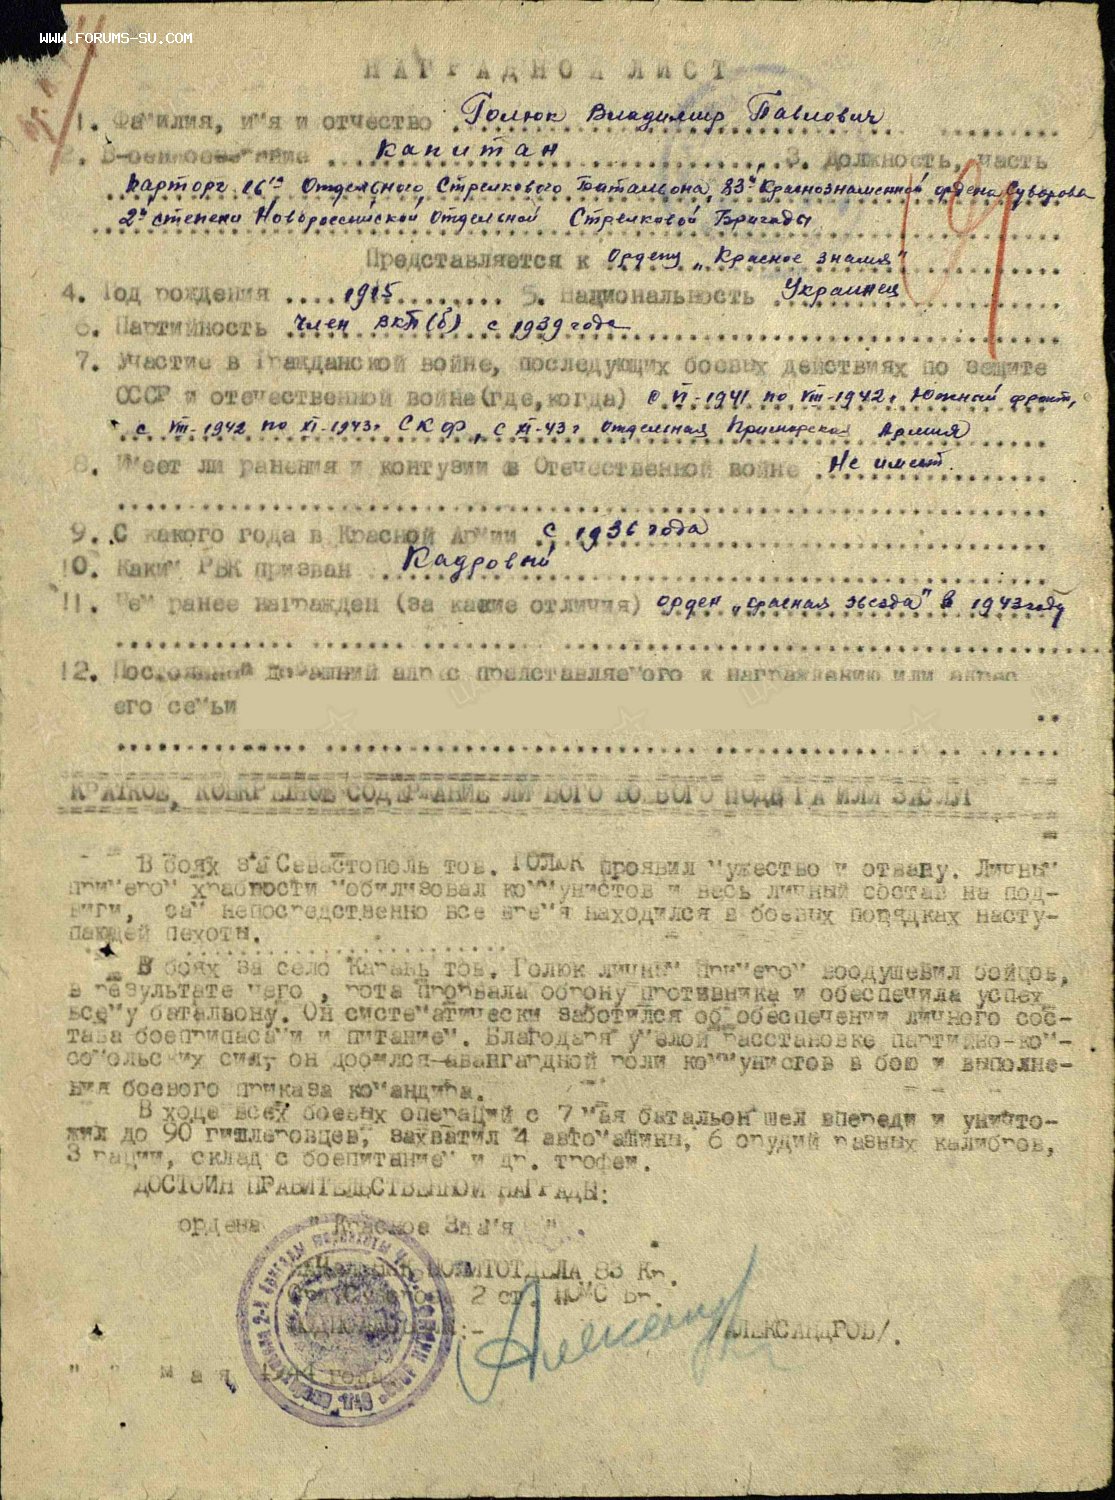 WWW.FORUMS-SU.COM
НАГРАДНОЙ ЛИСТ
1. Фамилия, имя и отчество Голюк Владимир Павлович
2. Военное звание капитан 3. Должность, часть
парторг 16го Отдельного Стрелкового Батальона, 83й Краснознаменной ордена Суворова
2й степени Новороссийской Отдельной Стрелковой Бригады
Представляется к Ордену „Красное знамя"
4. Год рождения 1915 5. Национальность Украинец
6. Партийность член ВКП(б) с 1939 года
7. Участие в Гражданской войне, последующих боевых действиях по защите
СССР и отечественной войне (где, когда) с VI-1941 по VIII-1942 г Южный фронт,
с VIII-1942 по XI-1943 г СКФ, с XI-43 г Отдельная Приморская Армия
8. Имеет ли ранения и контузии в Отечественной войне Не имеет.
9. С какого года в Красной Армии С 1936 года
10. Каким РВК призван Кадровый
11. Чем ранее награжден (за какие отличия) орден „Красная звезда" в 1943 году
12. Постоянный домашний адрес представляемого к награждению или адрес
его семьи
КРАТКОЕ, КОНКРЕТНОЕ СОДЕРЖАНИЕ ЛИЧНОГО БОЕВОГО ПОДВИГА ИЛИ ЗАСЛУГ
В боях за Севастополь тов. ГОЛЮК проявил мужество и отвагу. Личным
примером храбрости мобилизовал коммунистов и весь личный состав на под-
виги, сам непосредственно все время находился в боевых порядках насту-
пающей пехоты.
В боях за село Карань тов. Голюк личным примером воодушевил бойцов,
в результате чего, рота прорвала оборону противника и обеспечила успех
всему батальону. Он систематически заботился об обеспечении личного сос-
тава боеприпасами и питанием. Благодаря умелой расстановке партийно-ком-
сомольских сил, он добился авангардной роли коммунистов в бою и выполне-
ния боевого приказа командира.
В ходе всех боевых операций с 7 мая батальон шел впереди и уничто-
жил до 90 гитлеровцев, захватил 4 автомашины, 6 орудий разных калибров,
3 рации, склад с боепитанием и др. трофеи.
ДОСТОИН ПРАВИТЕЛЬСТВЕННОЙ НАГРАДЫ:
ордена "Красное Знамя".
НАЧАЛЬНИК ПОЛИТОТДЕЛА 83 Кр.
2 ст.
/АЛЕКСАНДРОВ/.
мая 1944 года